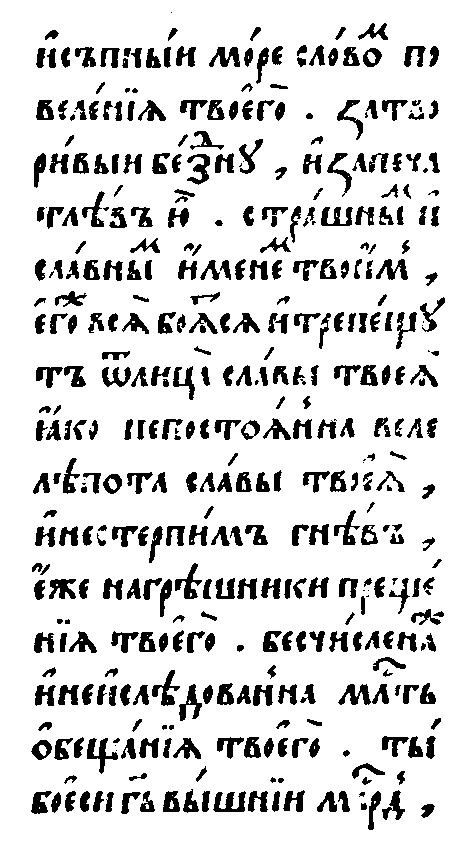 и҆съпны́и мо́ре сло́воⷨ по
велѐнїѧ твоего̀ . затво
ри́выи бе́зⷣнꙋ , и҆запеча
тлѣ́въ ю҆̀ . стра́шныⷨ и҆
сла́вныⷨ и҆́менеⷨ твои́мъ ,
е҆гоⷤ всѧ̀ боѧ́тсѧ и҆трепе́щꙋ
тъ ѿлица̀ сла́вы твоеѧ̀
ꙗ҆́ко непостоѧ́нна веле
лѣпота сла́вы твоеѧ̀ ,
и҆нестерпи́мъ гнѣ́въ ,
е҆́же нагрѣ́шники преще́
нїѧ твоего̀ . бесчи́сленаⷤ
и҆неи҆слѣ́дованна млⷭ҇ть
ѻ҆беща́нїѧ твоего̀ . ты́
бо есѝ гь҃ вы́шнїи мⷧ҇рдъ ,